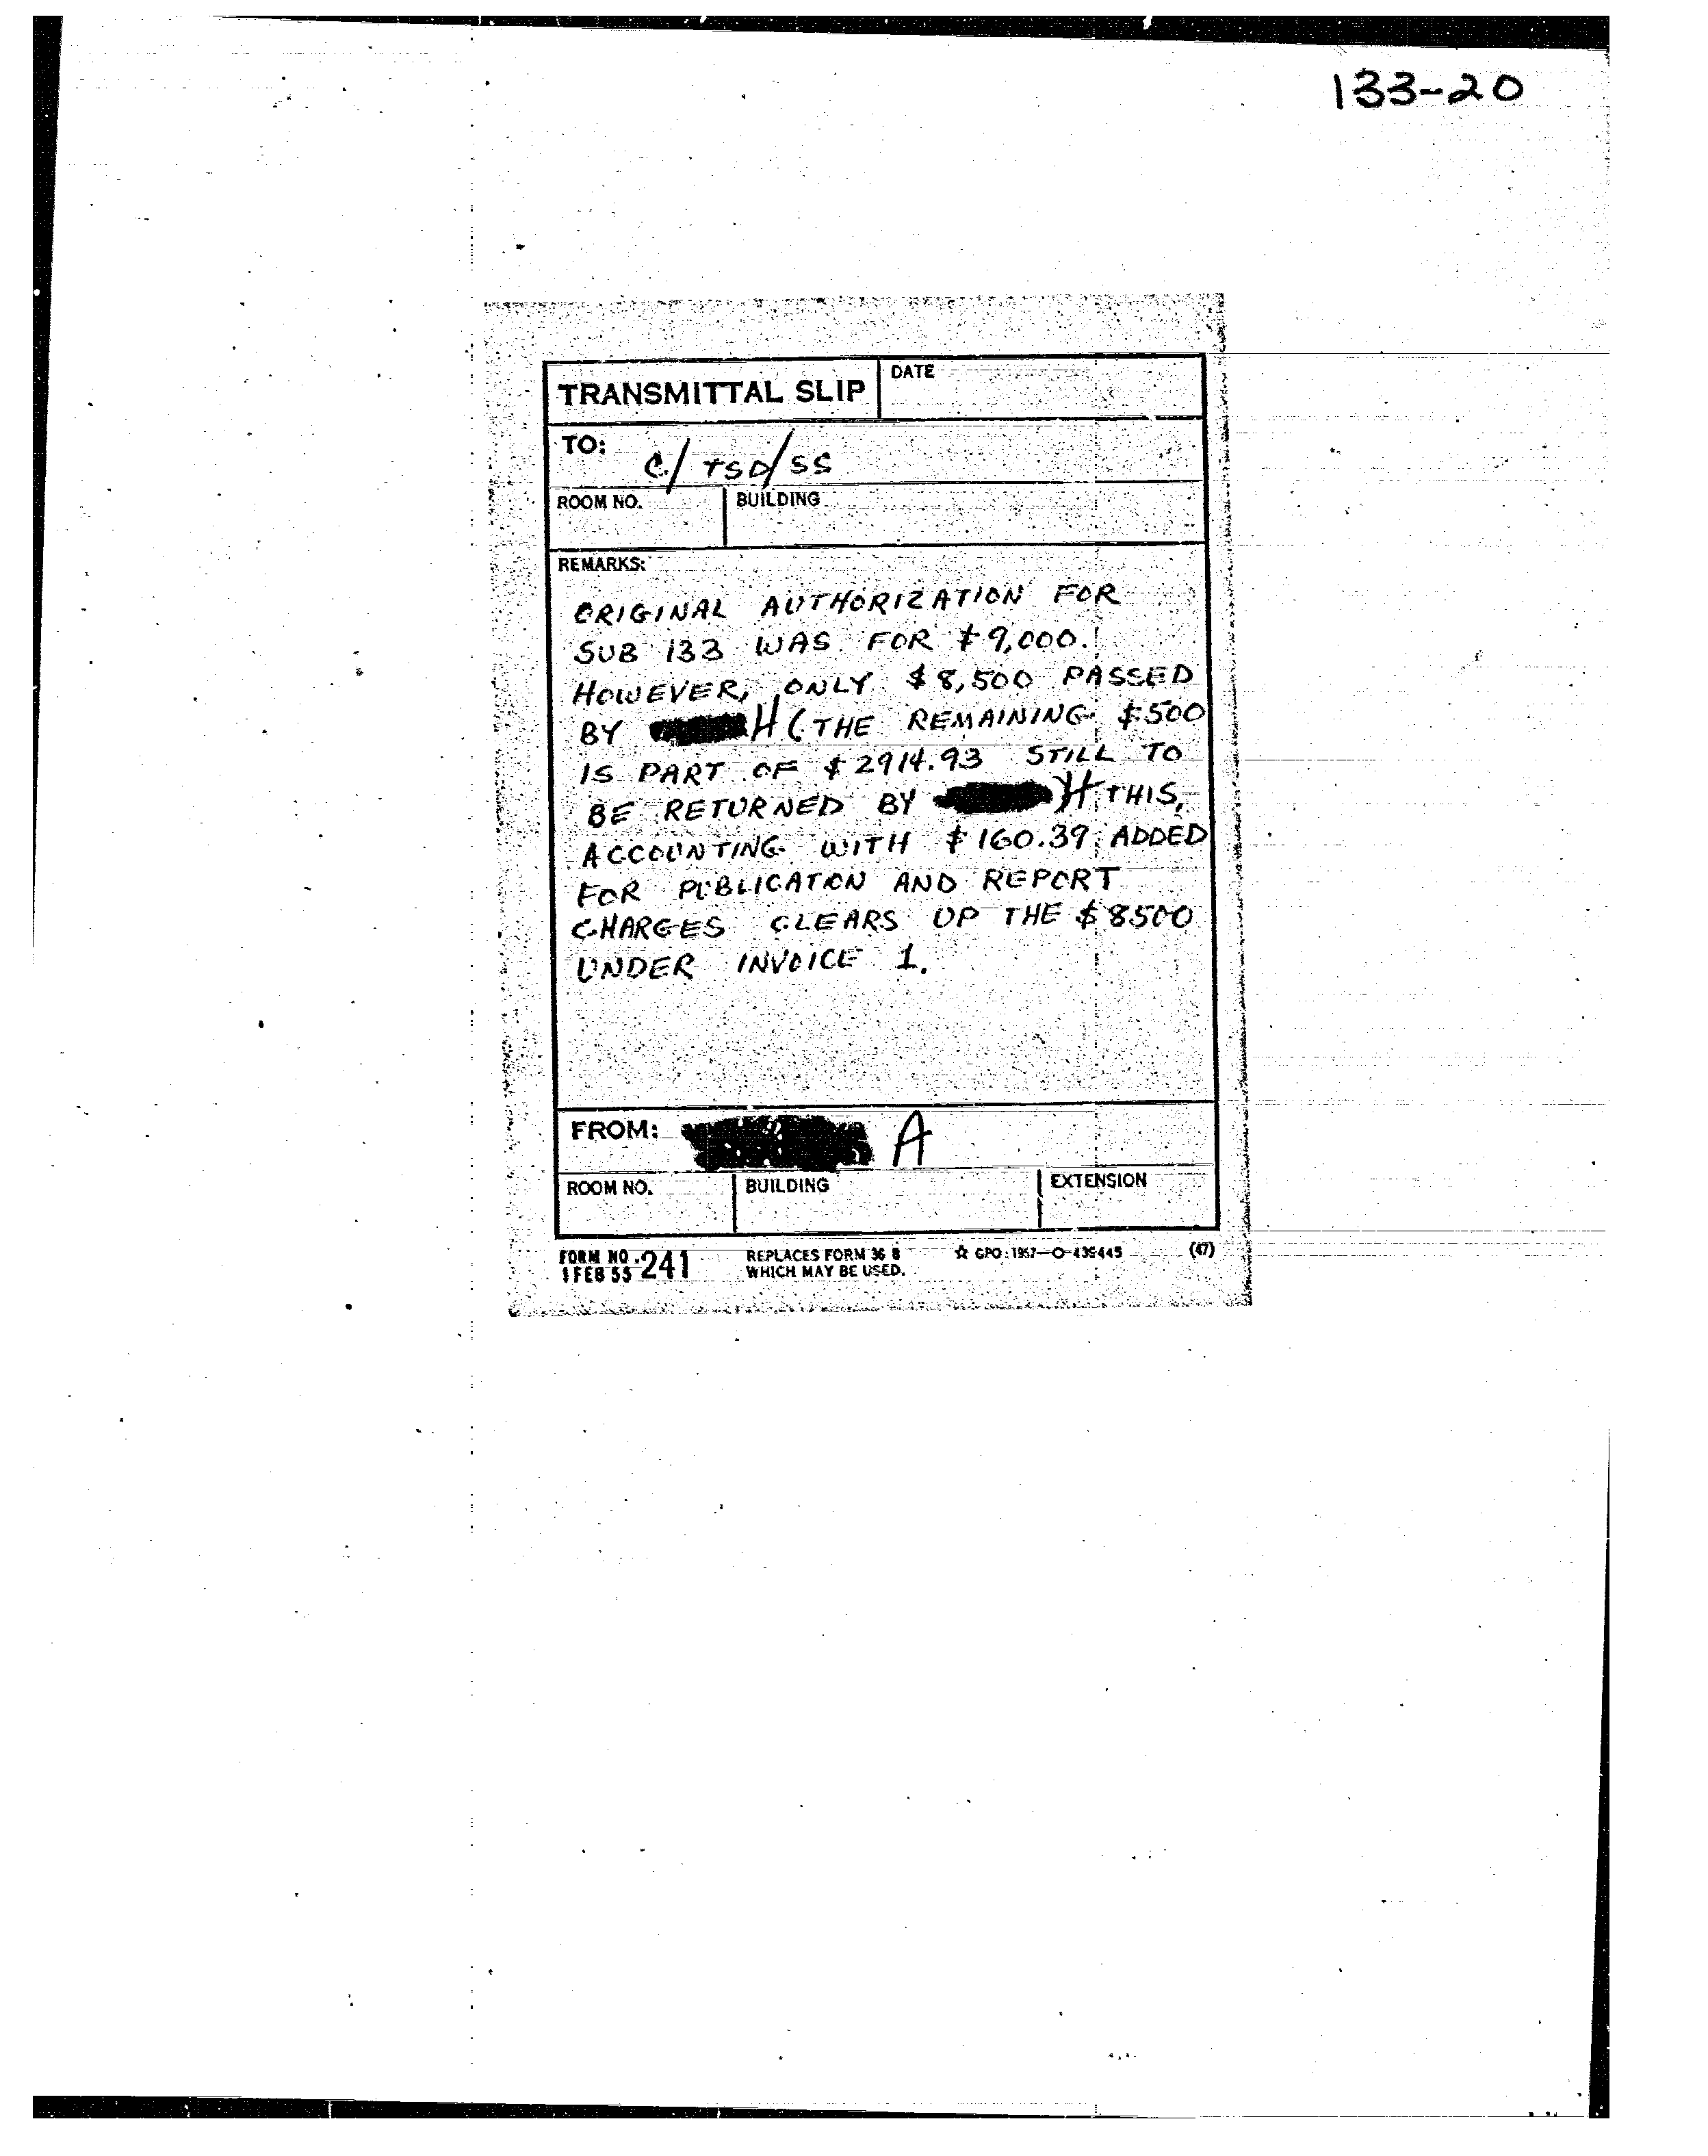 133-20
TRANSMITTAL SLIP
DATE
TO:
C/TSD/SS
ROOM NO.
BUILDING
REMARKS:
ORIGINAL AUTHORIZATION FOR
SUB 133 WAS FOR $9,000.
HOWEVER, ONLY $8,500 PASSED
BY H (THE REMAINING $500
IS PART OF $2914.93 STILL TO
BE RETURNED BY H) THIS
ACCOUNTING WITH $160.39 ADDED
FOR PUBLICATION AND REPORT
CHARGES CLEARS UP THE $8500
UNDER INVOICE 1.
FROM: A
ROOM NO.
BUILDING
EXTENSION
FORM NO. 241
1 FEB 55
REPLACES FORM 36-8
WHICH MAY BE USED.
☆ GPO: 1957—O-439445
(47)